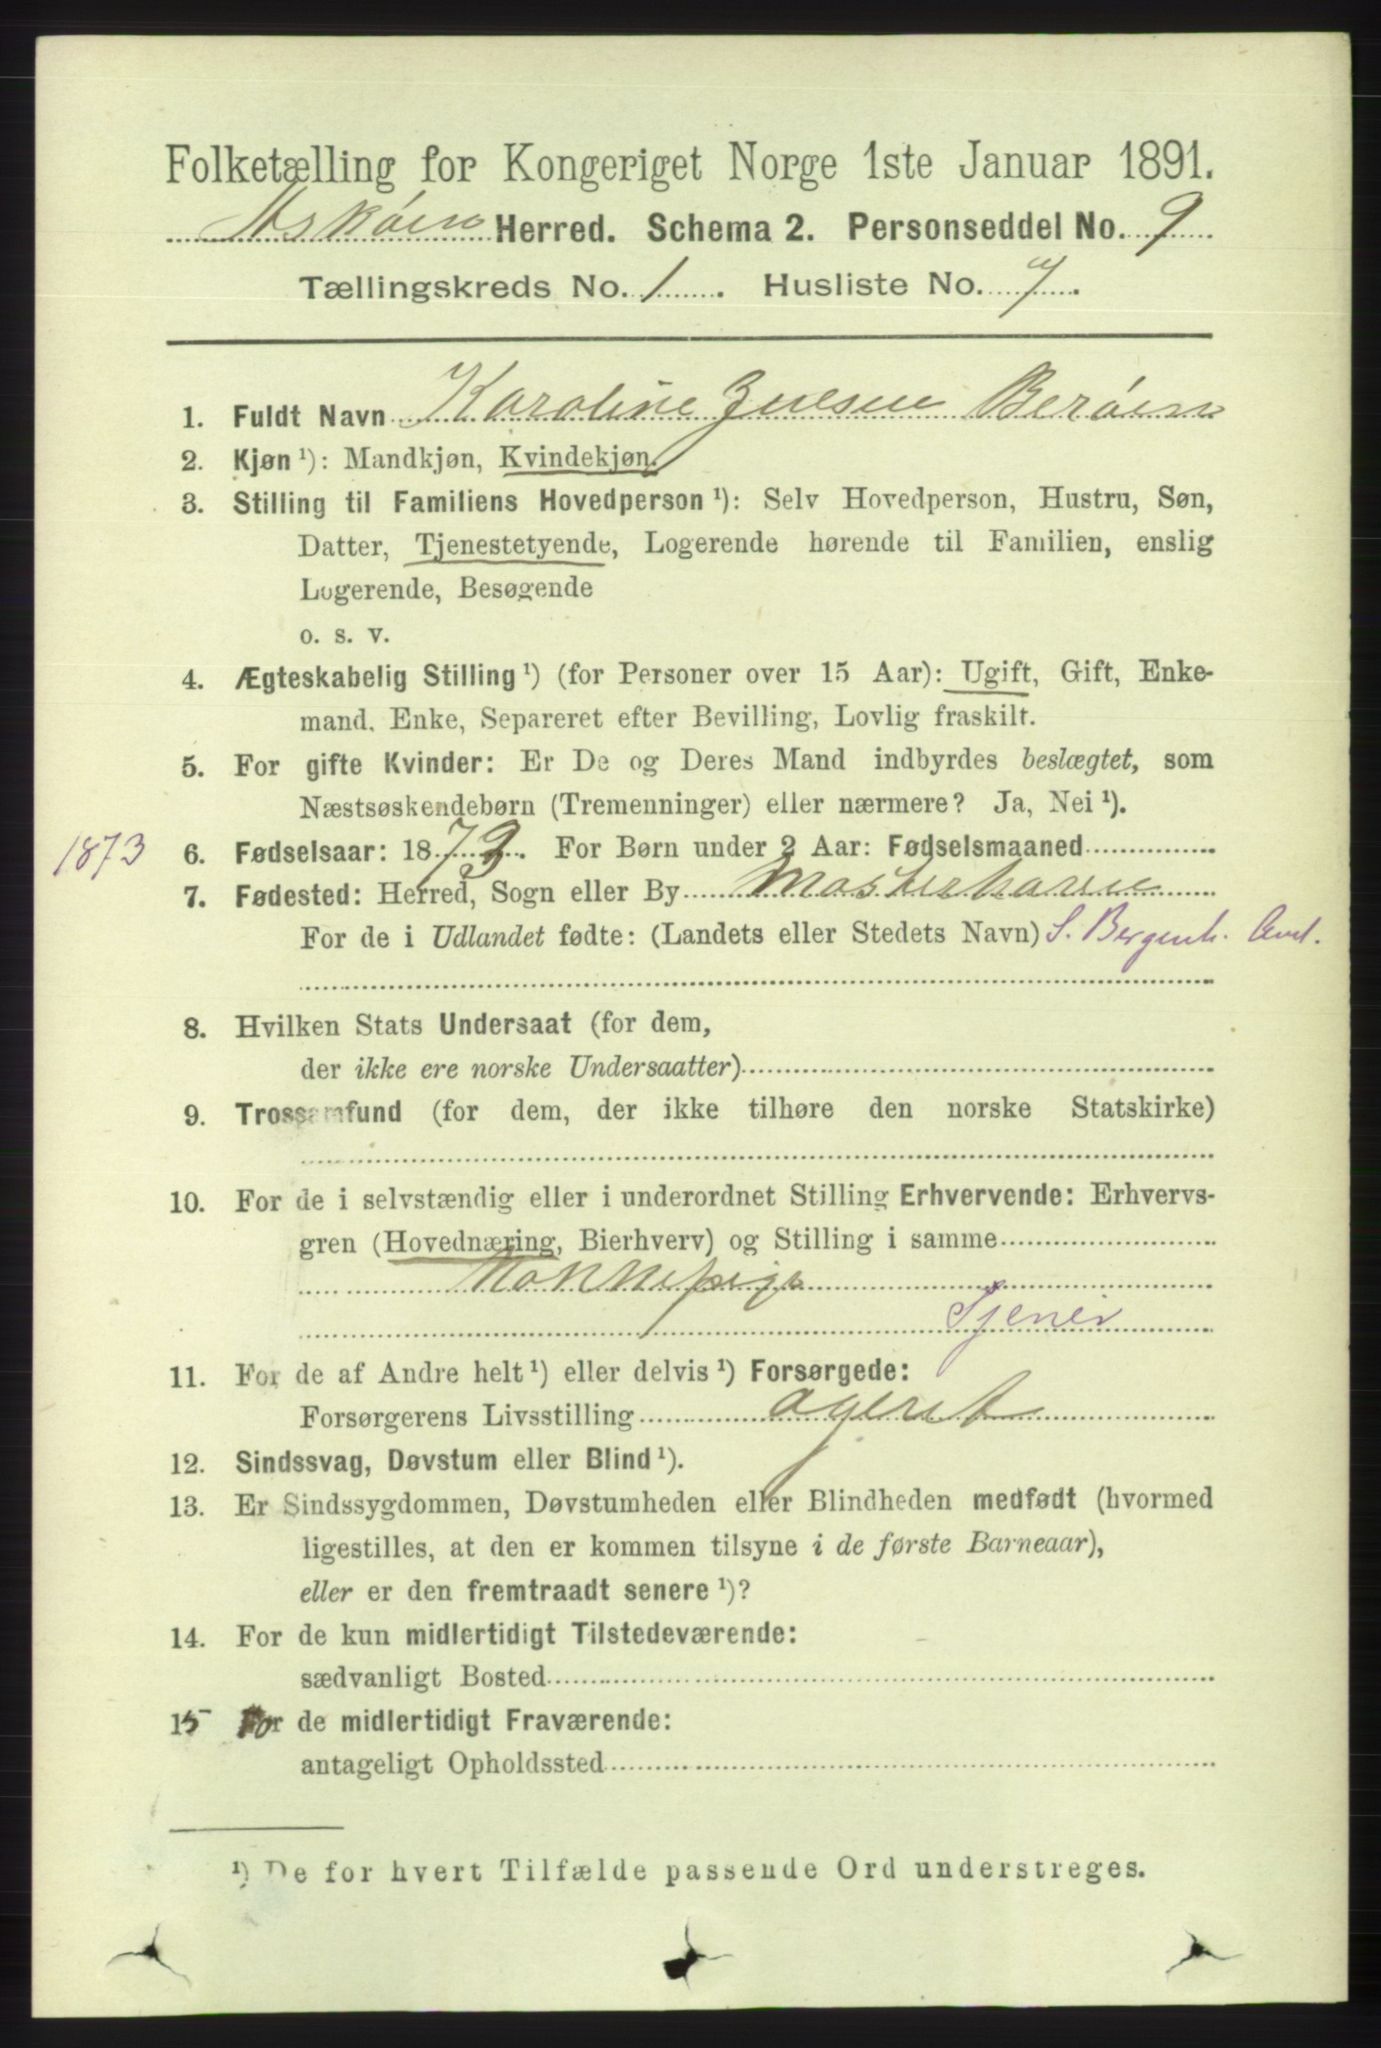 Folketælling for Kongeriget Norge 1ste Januar 1891.
Askøen Herred. Schema 2. Personseddel No. 9
Tællingskreds No. 1. Husliste No. 7.
1. Fuldt Navn Karoline Berøen
2. Kjøn ¹): Mandkjøn, Kvindekjøn.
3. Stilling til Familiens Hovedperson ¹): Selv Hovedperson, Hustru, Søn,
Datter, Tjenestetyende, Logerende hørende til Familien, enslig
Logerende, Besøgende
o. s. v.
4. Ægteskabelig Stilling ¹) (for Personer over 15 Aar): Ugift, Gift, Enke-
mand, Enke, Separeret efter Bevilling, Lovlig fraskilt.
5. For gifte Kvinder: Er De og Deres Mand indbyrdes beslægtet, som
Næstsøskendebørn (Tremenninger) eller nærmere? Ja, Nei ¹).
1873 6. Fødselsaar: 1873. For Børn under 2 Aar: Fødselsmaaned
7. Fødested: Herred, Sogn eller By Mosterhavn
For de i Udlandet fødte: (Landets eller Stedets Navn) S. Bergenh. Amt.
8. Hvilken Stats Undersaat (for dem,
der ikke ere norske Undersaatter)
9. Trossamfund (for dem, der ikke tilhøre den norske Statskirke)
10. For de i selvstændig eller i underordnet Stilling Erhvervende: Erhvervs-
gren (Hovednæring, Bierhverv) og Stilling i samme
Kokkepige
Tjener
11. For de af Andre helt ¹) eller delvis ¹) Forsørgede:
Forsørgerens Livsstilling
12. Sindssvag, Døvstum eller Blind ¹).
13. Er Sindssygdommen, Døvstumheden eller Blindheden medfødt (hvormed
ligestilles, at den er kommen tilsyne i de første Barneaar),
eller er den fremtraadt senere ¹)?
14. For de kun midlertidigt Tilstedeværende:
sædvanligt Bosted
15 For de midlertidigt Fraværende:
antageligt Opholdssted
¹) De for hvert Tilfælde passende Ord understreges.